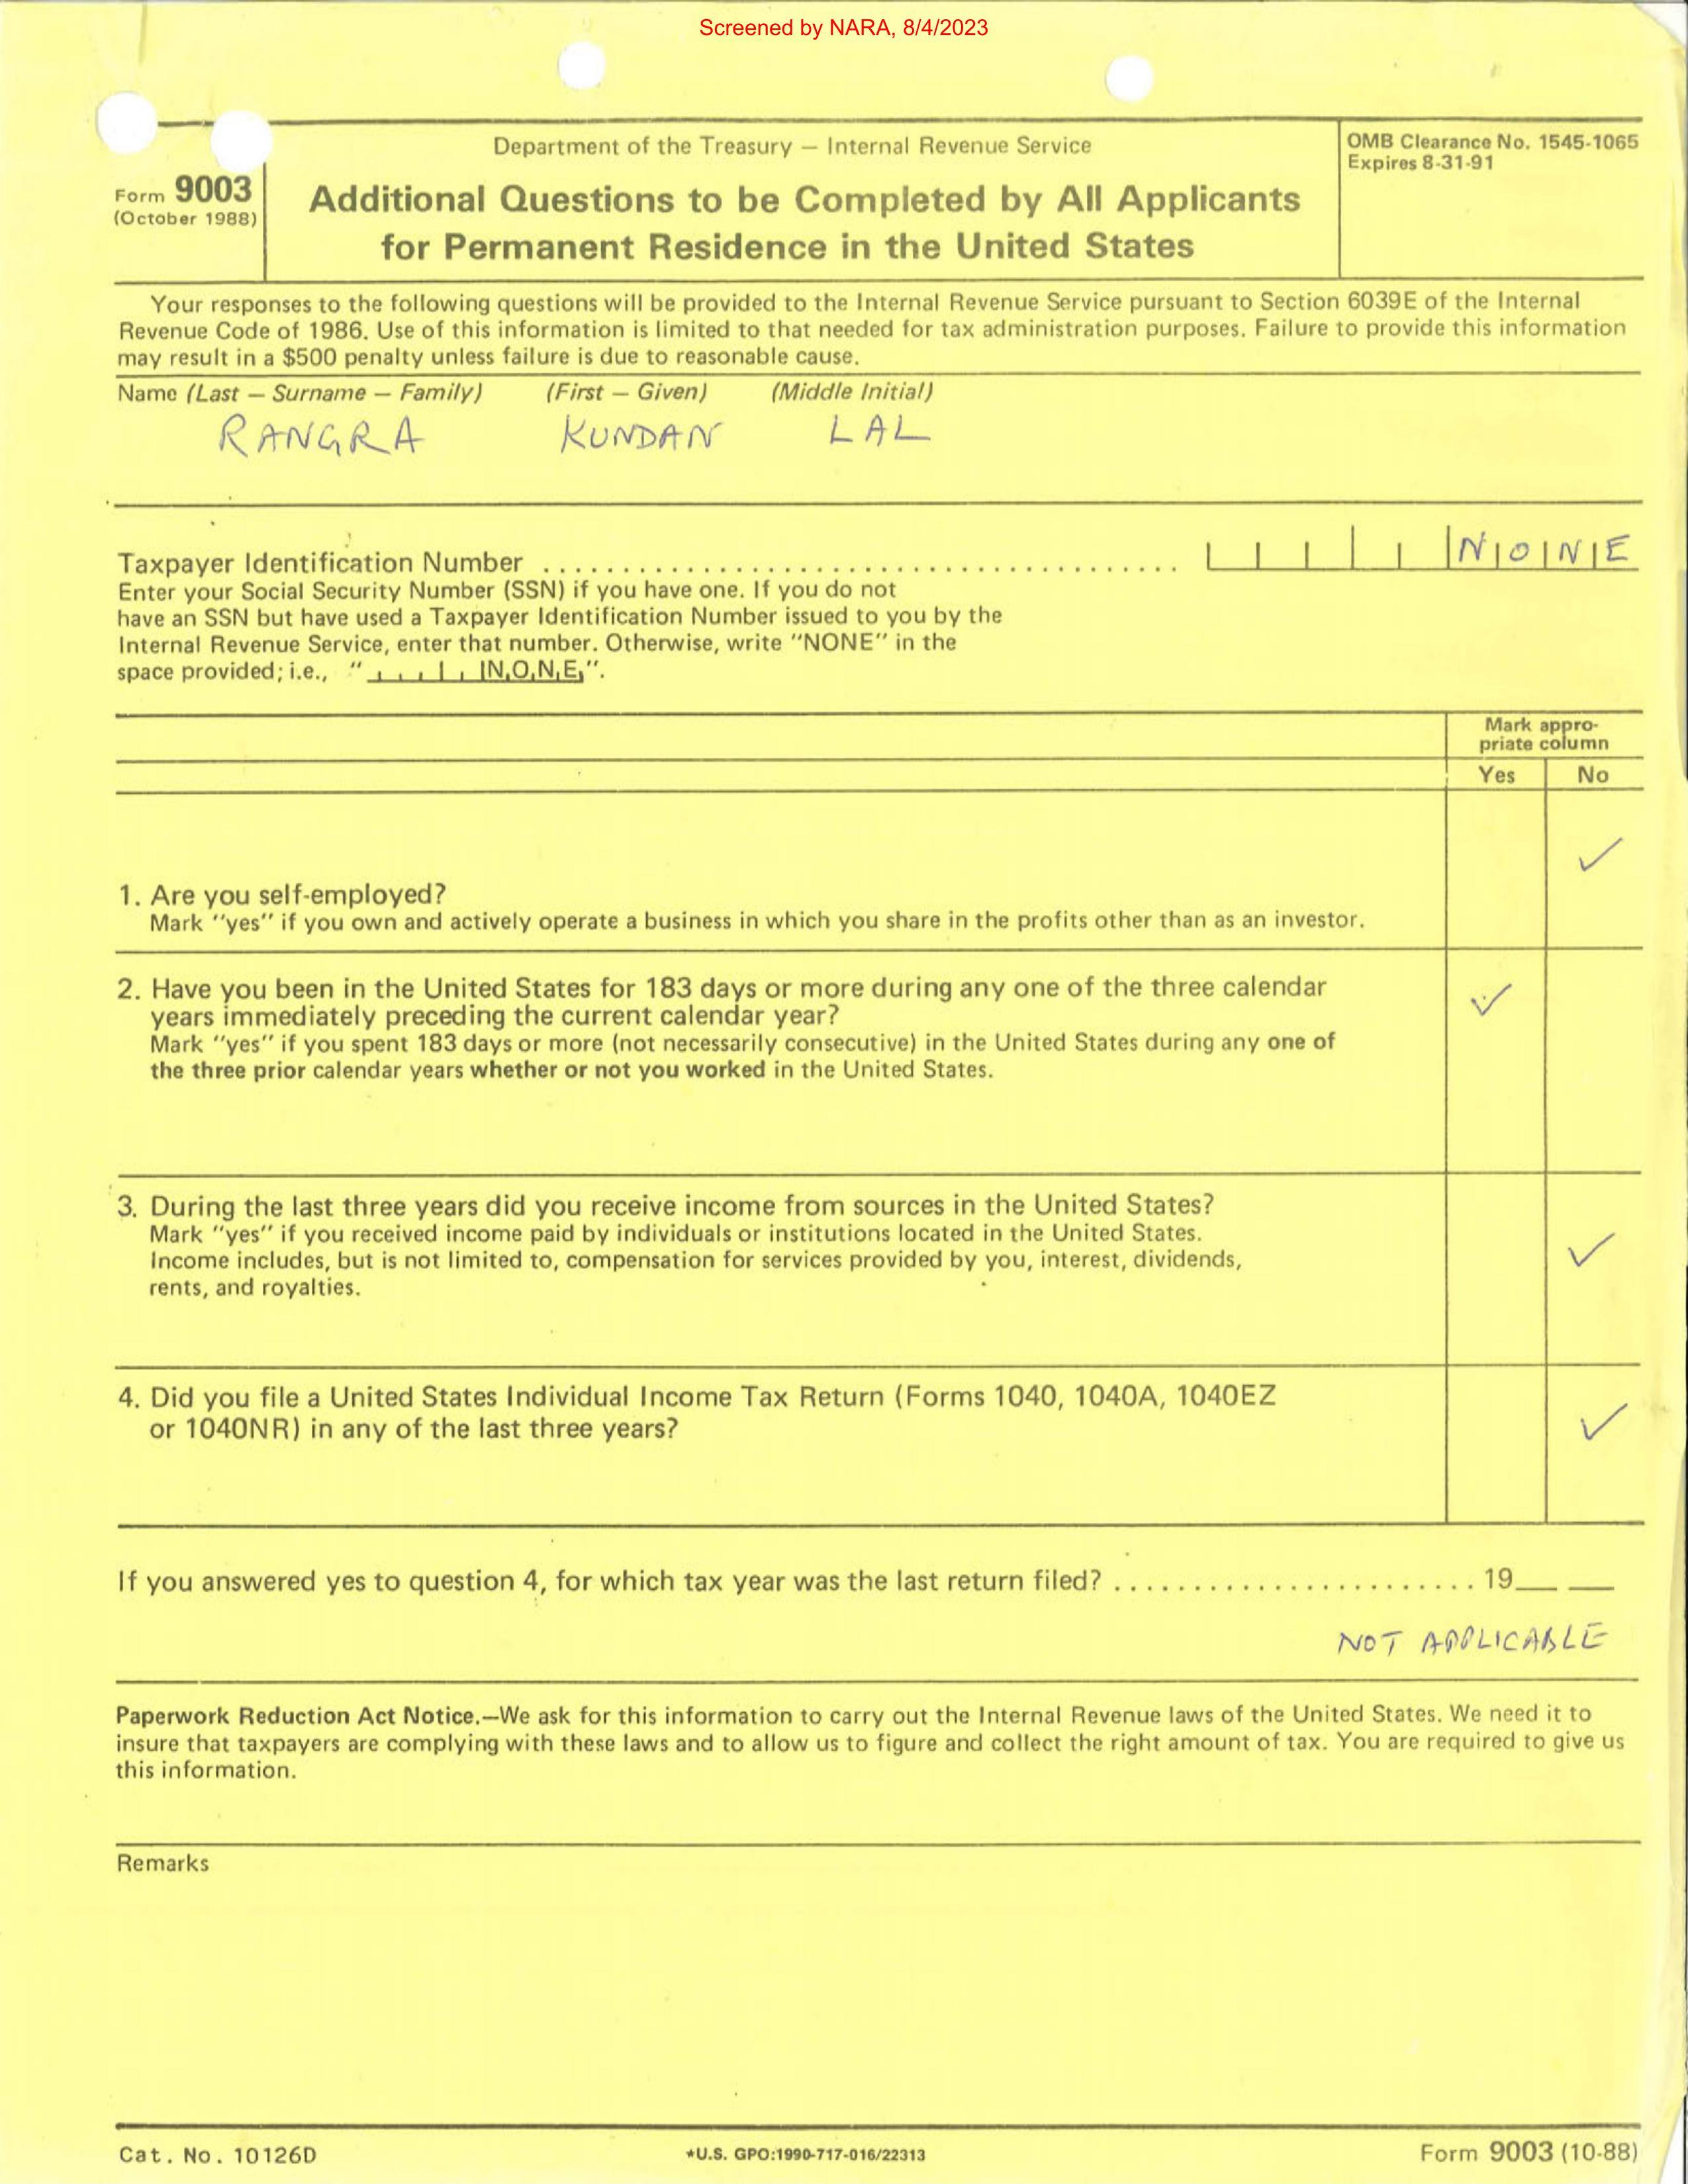 Screened by NARA, 8/4/2023
Department of the Treasury — Internal Revenue Service
OMB Clearance No. 1545-1065
Expires 8-31-91
Form 9003
(October 1988)
Additional Questions to be Completed by All Applicants
for Permanent Residence in the United States
Your responses to the following questions will be provided to the Internal Revenue Service pursuant to Section 6039E of the Internal
Revenue Code of 1986. Use of this information is limited to that needed for tax administration purposes. Failure to provide this information
may result in a $500 penalty unless failure is due to reasonable cause.
Name (Last — Surname — Family) (First — Given) (Middle Initial)
RANGRA KUNDAN LAL
Taxpayer Identification Number ........................................ N O N E
Enter your Social Security Number (SSN) if you have one. If you do not
have an SSN but have used a Taxpayer Identification Number issued to you by the
Internal Revenue Service, enter that number. Otherwise, write "NONE" in the
space provided; i.e., " N O N E ".
Mark appro-
priate column
Yes No
✓
1. Are you self-employed?
Mark "yes" if you own and actively operate a business in which you share in the profits other than as an investor.
2. Have you been in the United States for 183 days or more during any one of the three calendar ✓
years immediately preceding the current calendar year?
Mark "yes" if you spent 183 days or more (not necessarily consecutive) in the United States during any one of
the three prior calendar years whether or not you worked in the United States.
3. During the last three years did you receive income from sources in the United States?
Mark "yes" if you received income paid by individuals or institutions located in the United States.
Income includes, but is not limited to, compensation for services provided by you, interest, dividends, ✓
rents, and royalties.
4. Did you file a United States Individual Income Tax Return (Forms 1040, 1040A, 1040EZ
or 1040NR) in any of the last three years? ✓
If you answered yes to question 4, for which tax year was the last return filed? ....................... 19__ __
NOT APPLICABLE
Paperwork Reduction Act Notice.—We ask for this information to carry out the Internal Revenue laws of the United States. We need it to
insure that taxpayers are complying with these laws and to allow us to figure and collect the right amount of tax. You are required to give us
this information.
Remarks
Cat. No. 10126D *U.S. GPO:1990-717-016/22313 Form 9003 (10-88)